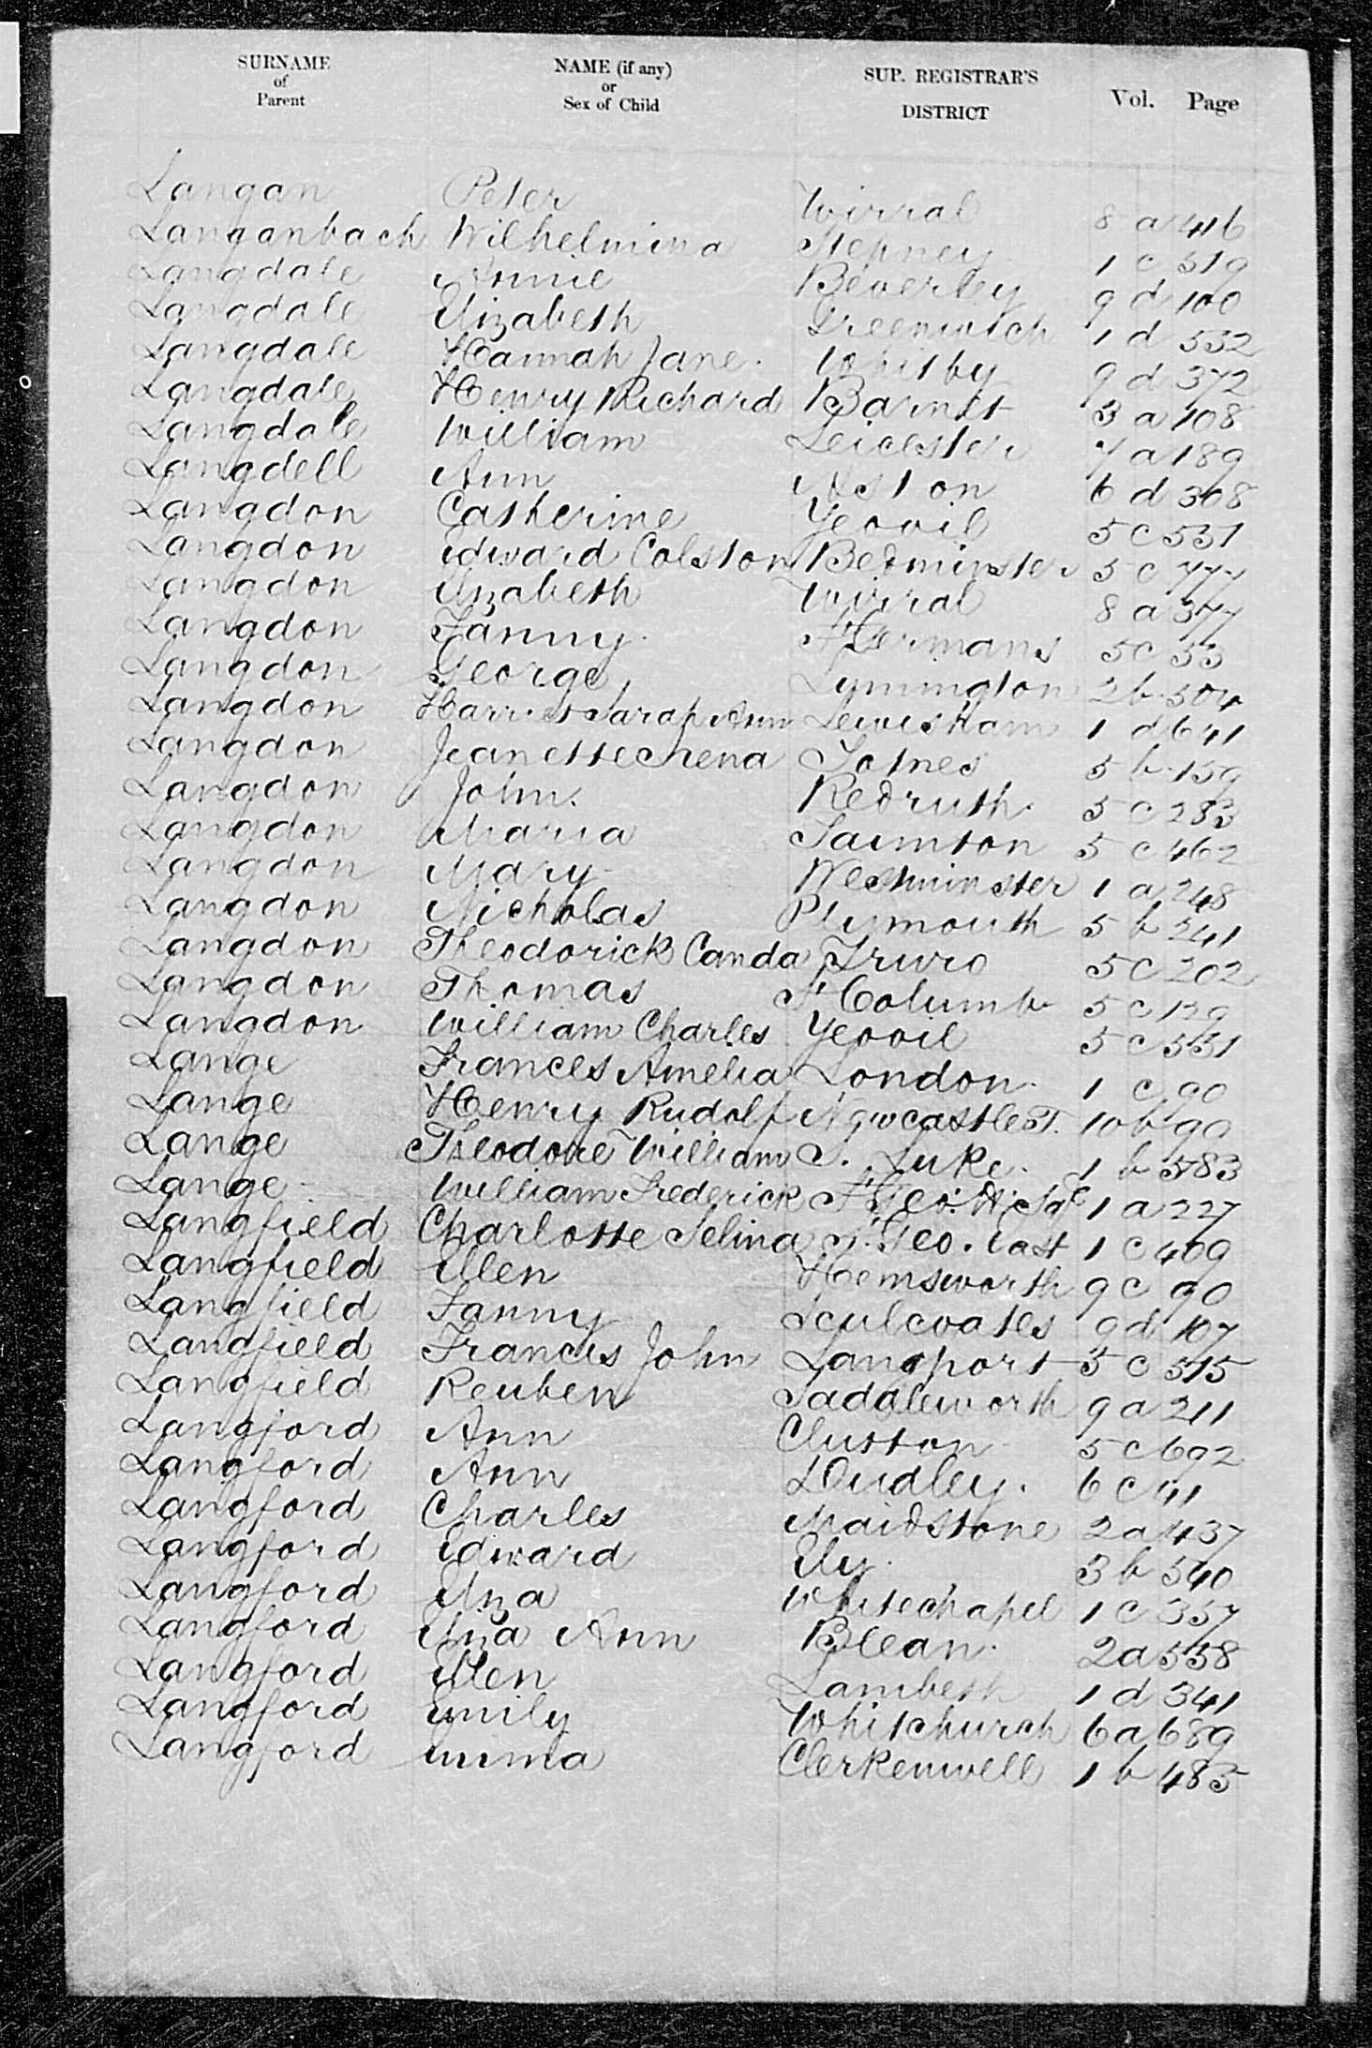 SURNAME of Parent NAME (if any) or Sex of Child SUP. REGISTRAR'S DISTRICT Vol. Page
Langan Peter Wirral 8 a 416
Langanbach Wilhelmina Stepney 1 c 519
Langdale Annie Beverley 9 d 100
Langdale Elizabeth Greenwich 1 d 532
Langdale Hannah Jane Whitby 9 d 372
Langdale Henry Richard Barnet 3 a 108
Langdale William Leicester 7 a 189
Langdell Ann Aston 6 d 308
Langdon Catherine Yeovil 5 c 531
Langdon Edward Colston Bedminster 5 c 777
Langdon Elizabeth Wirral 8 a 377
Langdon Fanny St Germans 5 c 53
Langdon George Lymington 2 b 504
Langdon Harriet Sarah Ann Lewisham 1 d 641
Langdon Jeanette Totnes 5 b 159
Langdon John Redruth 5 c 283
Langdon Maria Taunton 5 c 462
Langdon Mary Westminster 1 a 248
Langdon Nicholas Plymouth 5 b 241
Langdon Theodorick Canda Truro 5 c 202
Langdon Thomas St Columb 5 c 129
Langdon William Charles Yeovil 5 c 531
Lange Frances Amelia London 1 c 90
Lange Henry Rudolf Newcastle T. 10 b 90
Lange Theodore William S. Luke 1 b 583
Lange William Frederick St Geo. H. Sqe 1 a 227
Langfield Charlotte Selina St. Geo. East 1 c 409
Langfield Ellen Hemsworth 9 c 90
Langfield Fanny Sculcoates 9 d 107
Langfield Francis John Langport 5 c 515
Langfield Reuben Saddleworth 9 a 211
Langford Ann Clutton 5 c 692
Langford Ann Dudley. 6 c 41
Langford Charles Maidstone 2 a 437
Langford Edward Ely 3 b 540
Langford Eliza Whitechapel 1 c 357
Langford Eliza Ann Blean 2 a 558
Langford Ellen Lambeth 1 d 341
Langford Emily Whitchurch 6 a 689
Langford Emma Clerkenwell 1 b 485